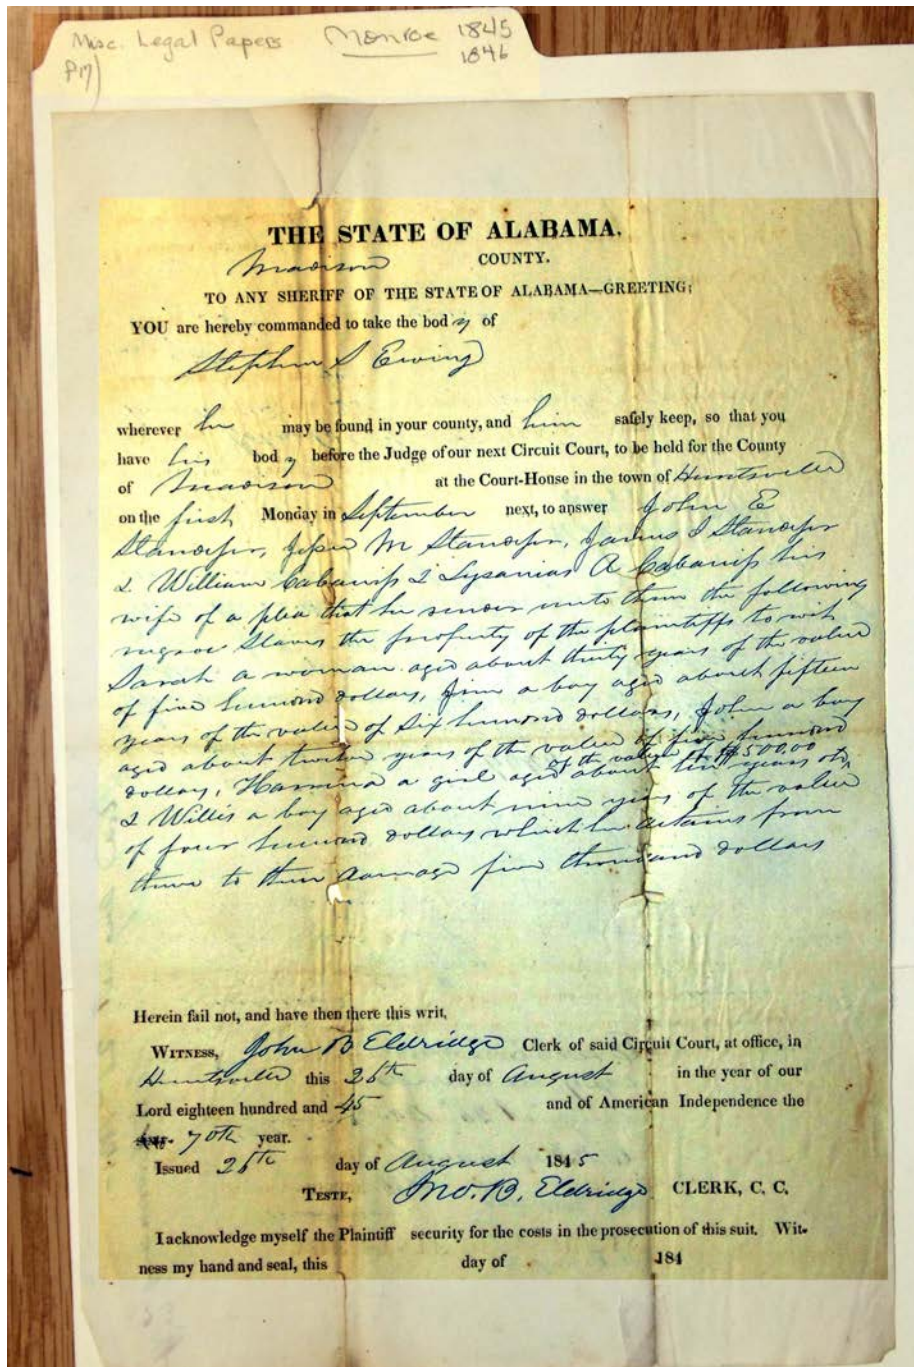 Misc. Legal Papers Monroe 1845
P17) 1846
THE STATE OF ALABAMA,
Madison COUNTY.
TO ANY SHERIFF OF THE STATE OF ALABAMA—GREETING:
YOU are hereby commanded to take the body of
Stephen S Ewing
wherever he may be found in your county, and him safely keep, so that you
have his body before the Judge of our next Circuit Court, to be held for the County
of Madison at the Court-House in the town of Huntsville
on the first Monday in September next, to answer John E
Standifer, Jesse M Standifer, James I Standifer
& William Cabaniss & Lysanias A Cabaniss his
wife of a plea that he render unto them the following
negroe Slaves the property of the plaintiffs to wit
Sarah a woman aged about thirty years of the value
of five hundred dollars, Jim a boy aged about fifteen
years of the value of Six hundred dollars, John a boy
aged about twelve years of the value of five hundred
of the value of $500.00
dollars, a girl aged about ten years old,
& Willis a boy aged about nine years of the value
of four hundred dollars which he detains from
them to their damage five thousand dollars
Herein fail not, and have then there this writ,
WITNESS, John B Eldridge Clerk of said Circuit Court, at office, in
Huntsville this 25th day of August in the year of our
Lord eighteen hundred and 45 and of American Independence the
70th year.
Issued 25th day of August 1845
TESTE, Jno. B. Eldridge CLERK, C. C.
I acknowledge myself the Plaintiff security for the costs in the prosecution of this suit. Wit-
ness my hand and seal, this day of 184